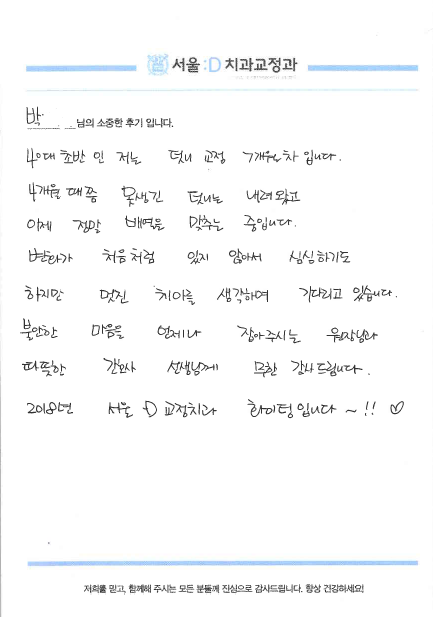 서울:D치과교정과
박 님의 소중한 후기 입니다.
40대 초반 인 저는 덧니 교정 7개월차 입니다.
4개월 때쯤 못생긴 덧니는 내려왔고
이제 정말 배열을 맞추는 중입니다.
변화가 처음처럼 있지 않아서 심심하기도
하지만 멋진 치아를 생각하며 기다리고 있습니다.
불안한 마음을 언제나 잡아주시는 원장님과
따뜻한 간호사 선생님께 무한 감사드립니다.
2018년 서울 :D 교정치과 화이팅입니다 ~!! ♡
저희를 믿고, 함께해 주시는 모든 분들께 진심으로 감사드립니다. 항상 건강하세요!